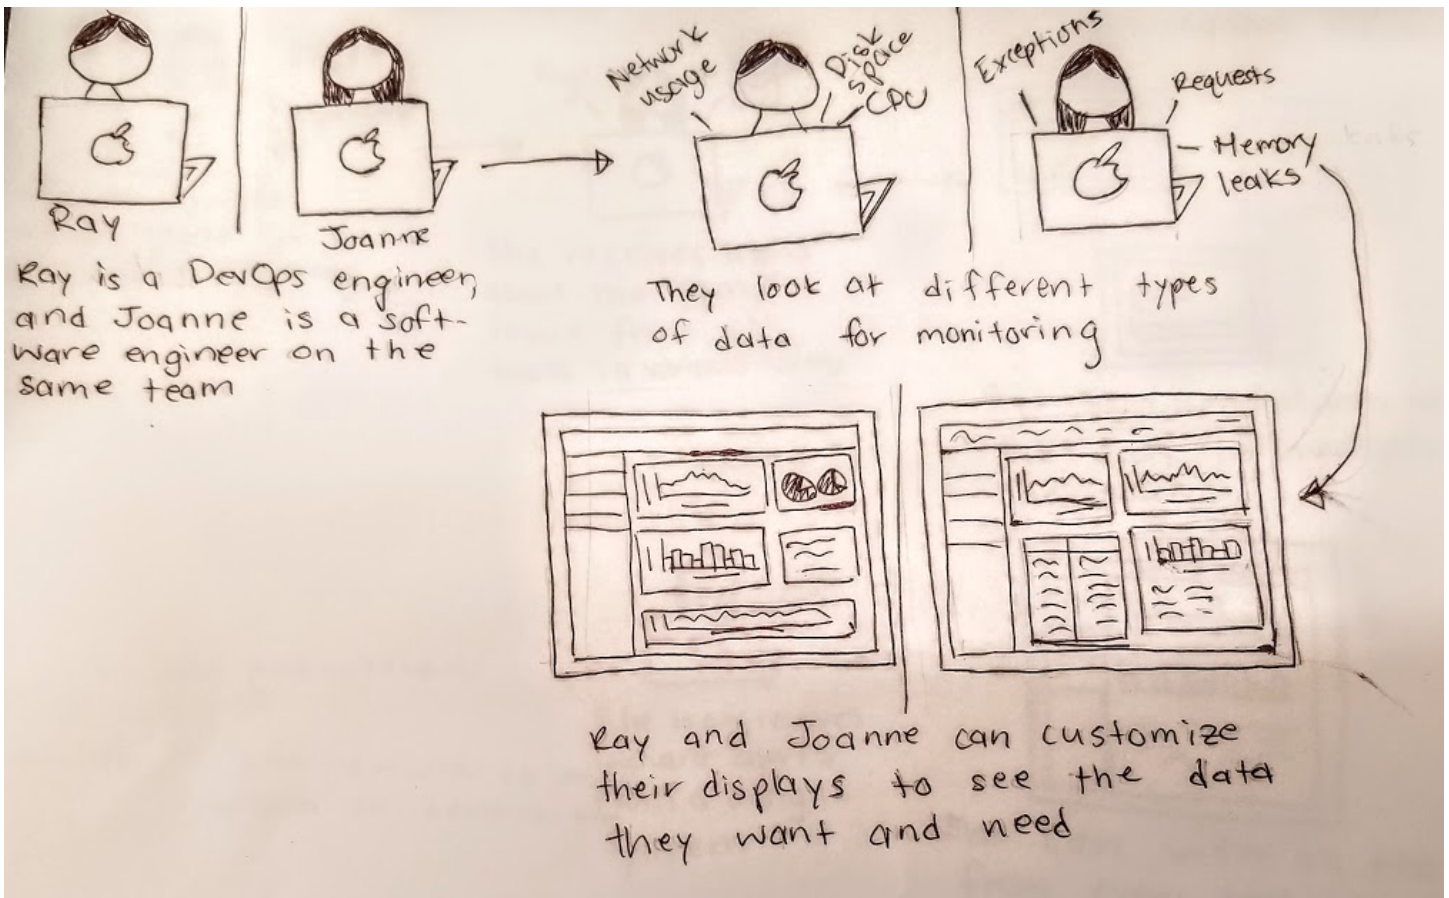 Ray
Joanne
Ray is a DevOps engineer,
and Joanne is a soft-
ware engineer on the
same team
Network
usage
Disk
space
CPU
Exceptions
Requests
Memory
leaks
They look at different types
of data for monitoring
Ray and Joanne can customize
their displays to see the data
they want and need